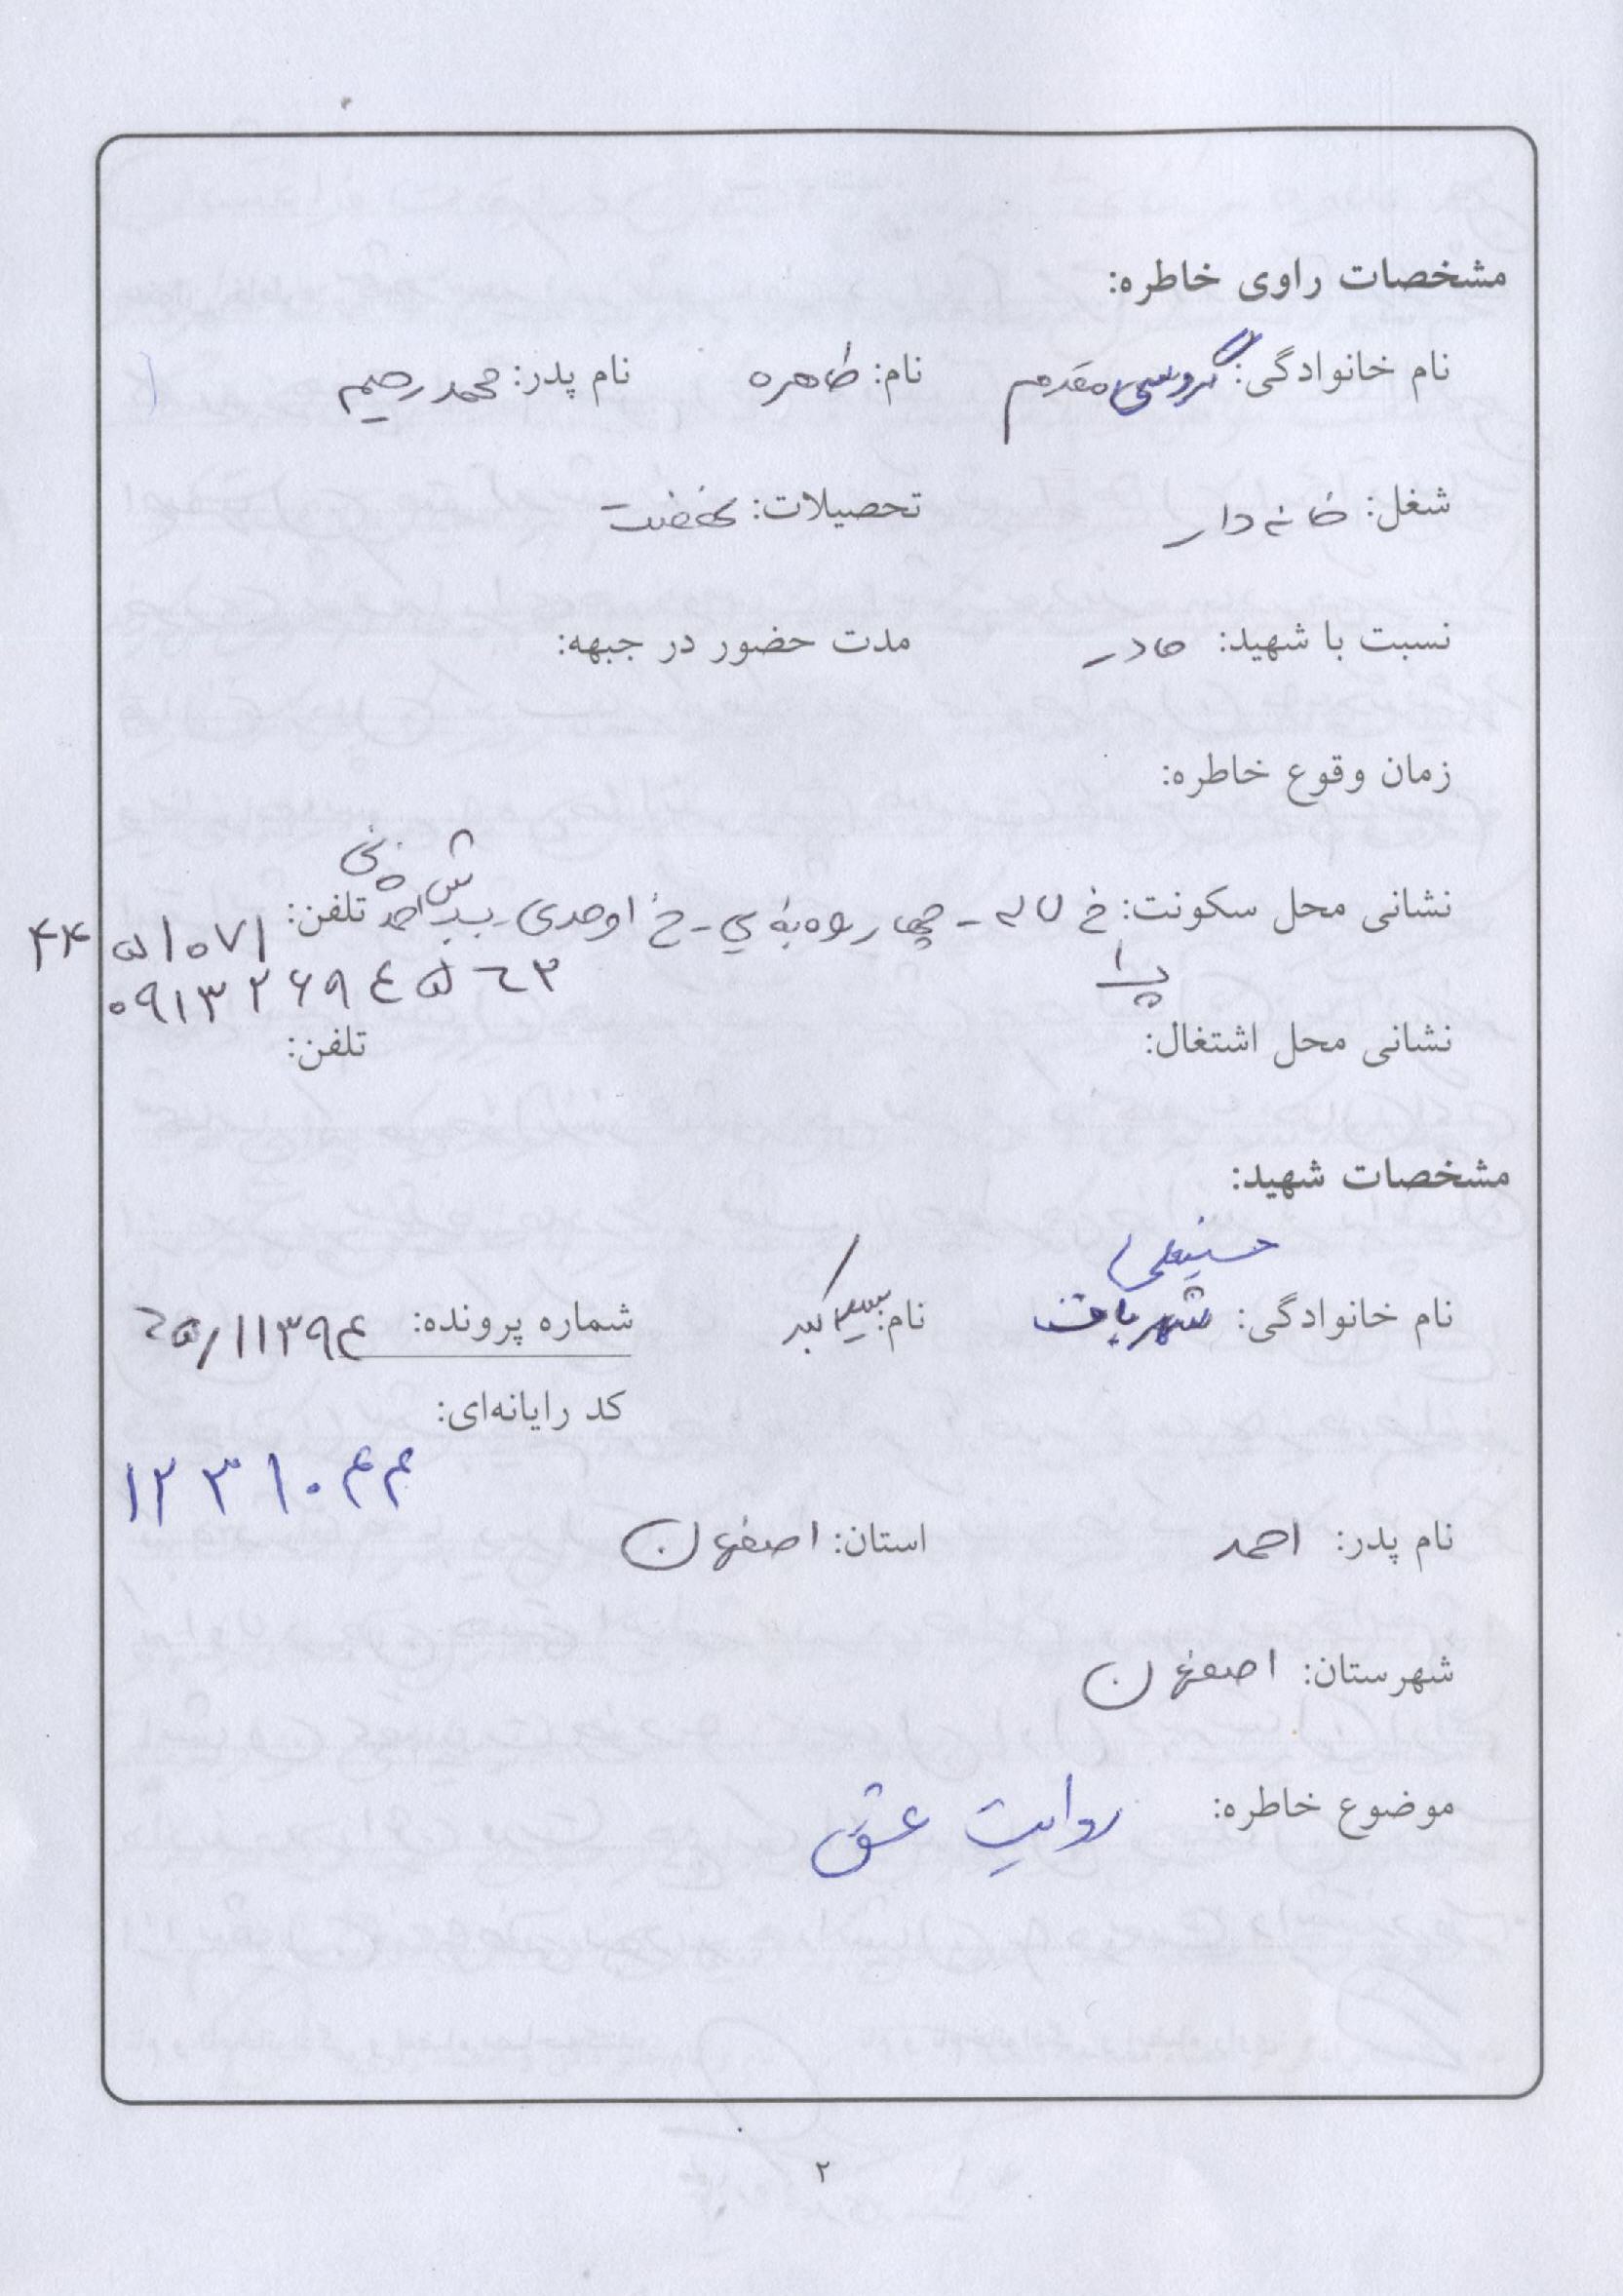 مشخصات راوی خاطره:
نام خانوادگی: گروسی مقدم نام: طاهره نام پدر: محمدرحیم
شغل: خانه‌دار تحصیلات: نهضت
نسبت با شهید: مادر مدت حضور در جبهه:
زمان وقوع خاطره:
نشانی محل سکونت: خ لاله - چهارراه - خ اوحدی - احمد تلفن: ۴۴۵۱۰۷۱
پ ۱
نشانی محل اشتغال: تلفن:
مشخصات شهید:
حسینعلی
نام خانوادگی: شهرباف نام: اکبر شماره پرونده:
کد رایانه‌ای:
۱۲۳۱۰۴۴
نام پدر: احمد استان: اصفهان
شهرستان: اصفهان
موضوع خاطره: روایت عشق
۲